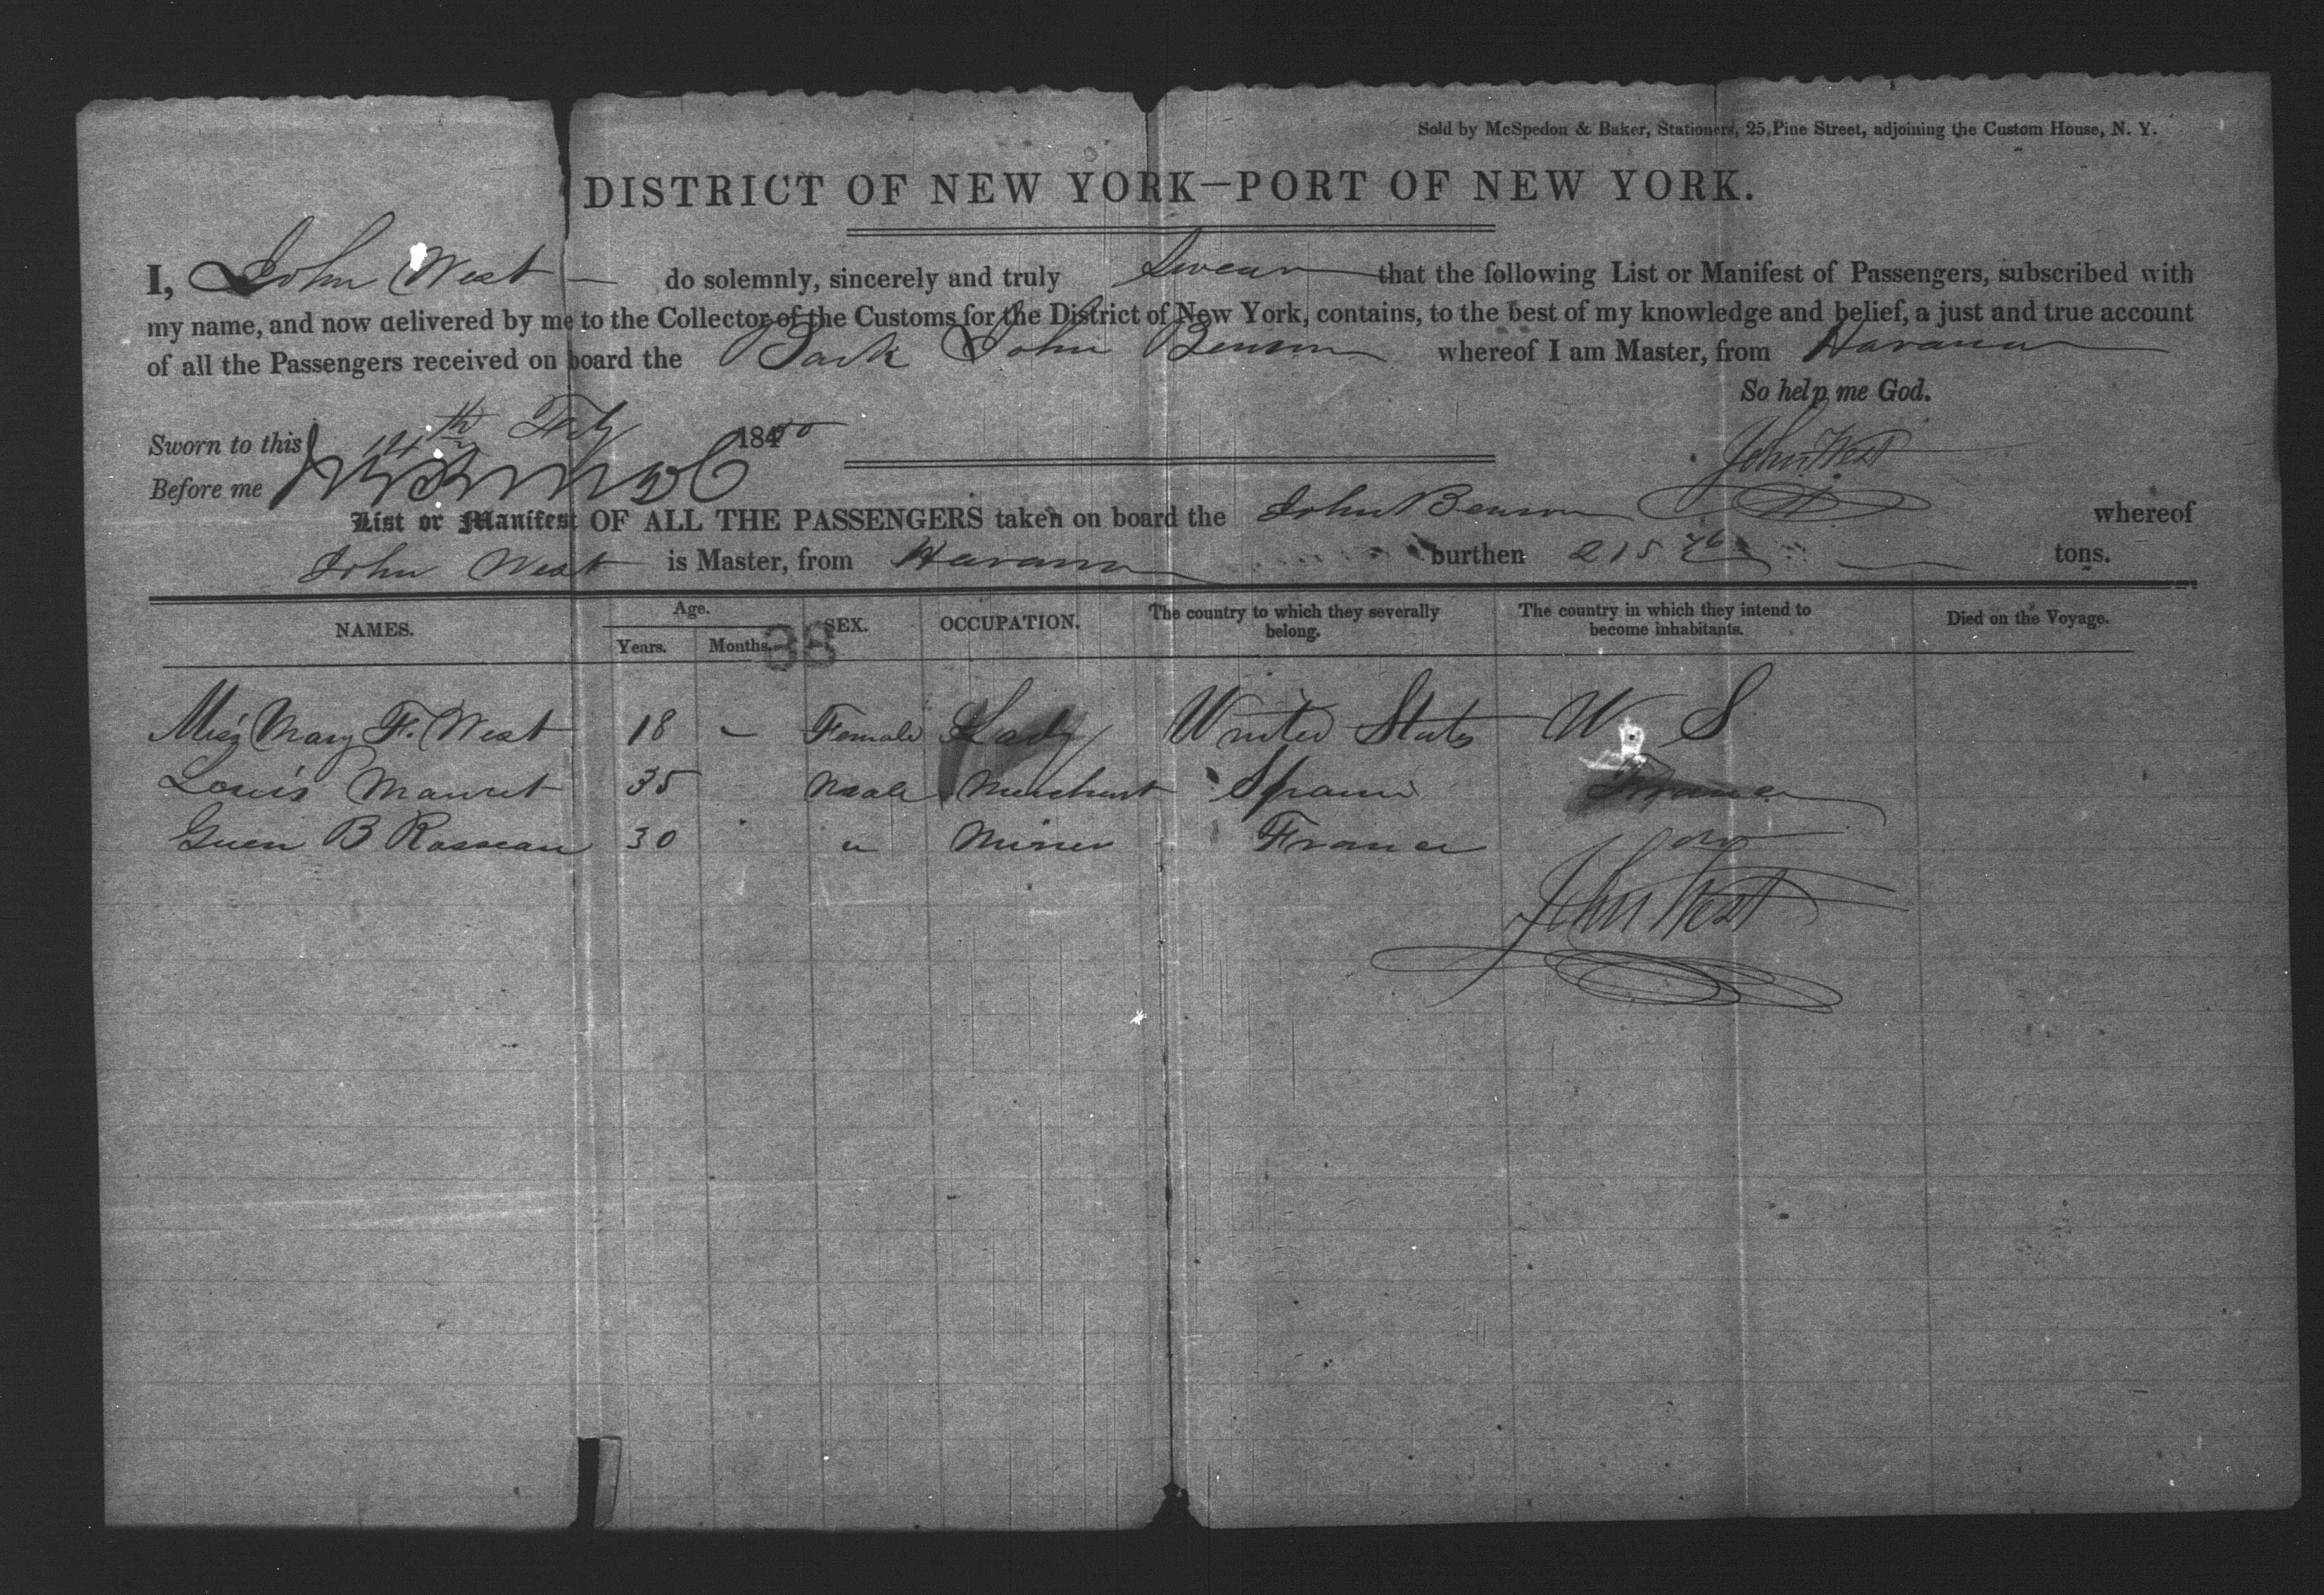 Sold by McSpedon & Baker, Stationers, 25 Pine Street, adjoining the Custom House, N. Y.
DISTRICT OF NEW YORK—PORT OF NEW YORK.
I, John West do solemnly, sincerely and truly Swear that the following List or Manifest of Passengers, subscribed with
my name, and now delivered by me to the Collector of the Customs for the District of New York, contains, to the best of my knowledge and belief, a just and true account
of all the Passengers received on board the Bark John Benson whereof I am Master, from Havana
So help me God.
Sworn to this 14th Feby 1850
John West
Before me
List or Manifest OF ALL THE PASSENGERS taken on board the John Benson whereof
John West is Master, from Havana burthen 215 76 tons.
NAMES. Age. Years. Months. SEX. OCCUPATION. The country to which they severally belong. The country in which they intend to become inhabitants. Died on the Voyage.
38
Miss Mary F. West 18 – Female Lady United States U S
Louis Mauret 35 Male Merchant Spain France
B Rosseau 30 " Miner France do
John West